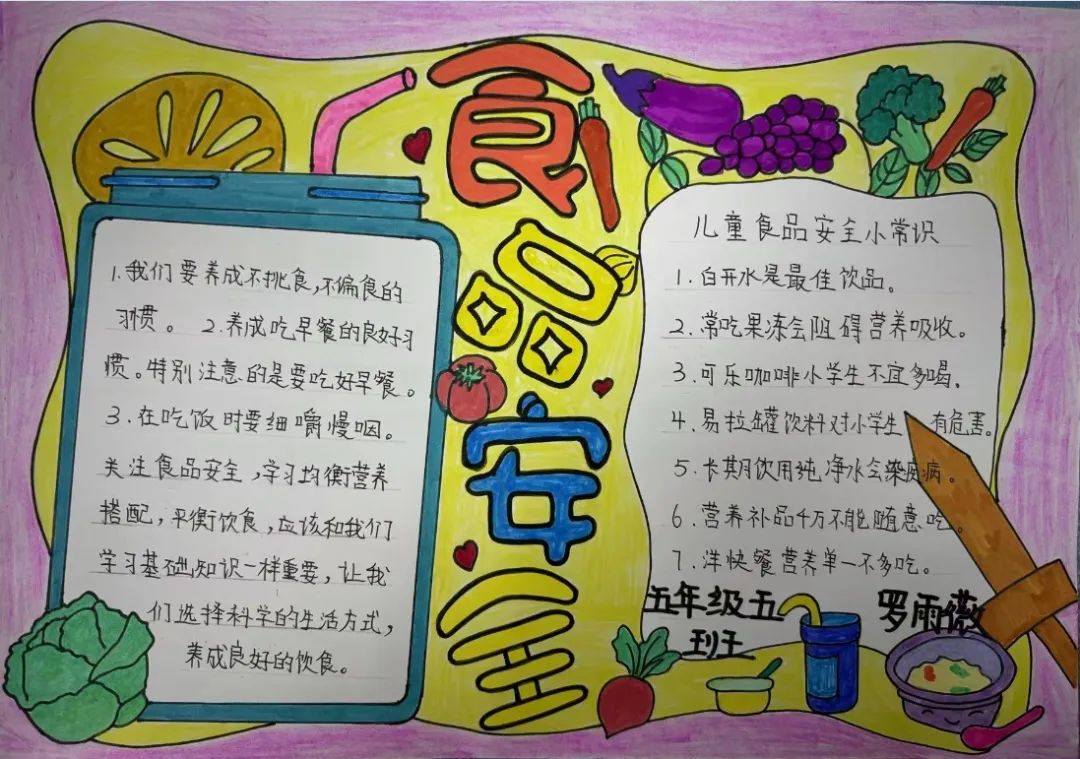 食品安全
1.我们要养成不挑食,不偏食的
习惯。 2.养成吃早餐的良好习
惯。特别注意的是要吃好早餐。
3.在吃饭时要细嚼慢咽。
关注食品安全,学习均衡营养
搭配,平衡饮食,应该和我们
学习基础知识一样重要,让我
们选择科学的生活方式,
养成良好的饮食。
儿童食品安全小常识
1.白开水是最佳饮品。
2.常吃果冻会阻碍营养吸收。
3.可乐咖啡小学生不宜多喝。
4.易拉罐饮料对小学生 有危害。
5.长期饮用纯净水会染 病。
6.营养补品千万不能随意吃。
7.洋快餐营养单一不多吃。
五年级五
班
罗雨薇